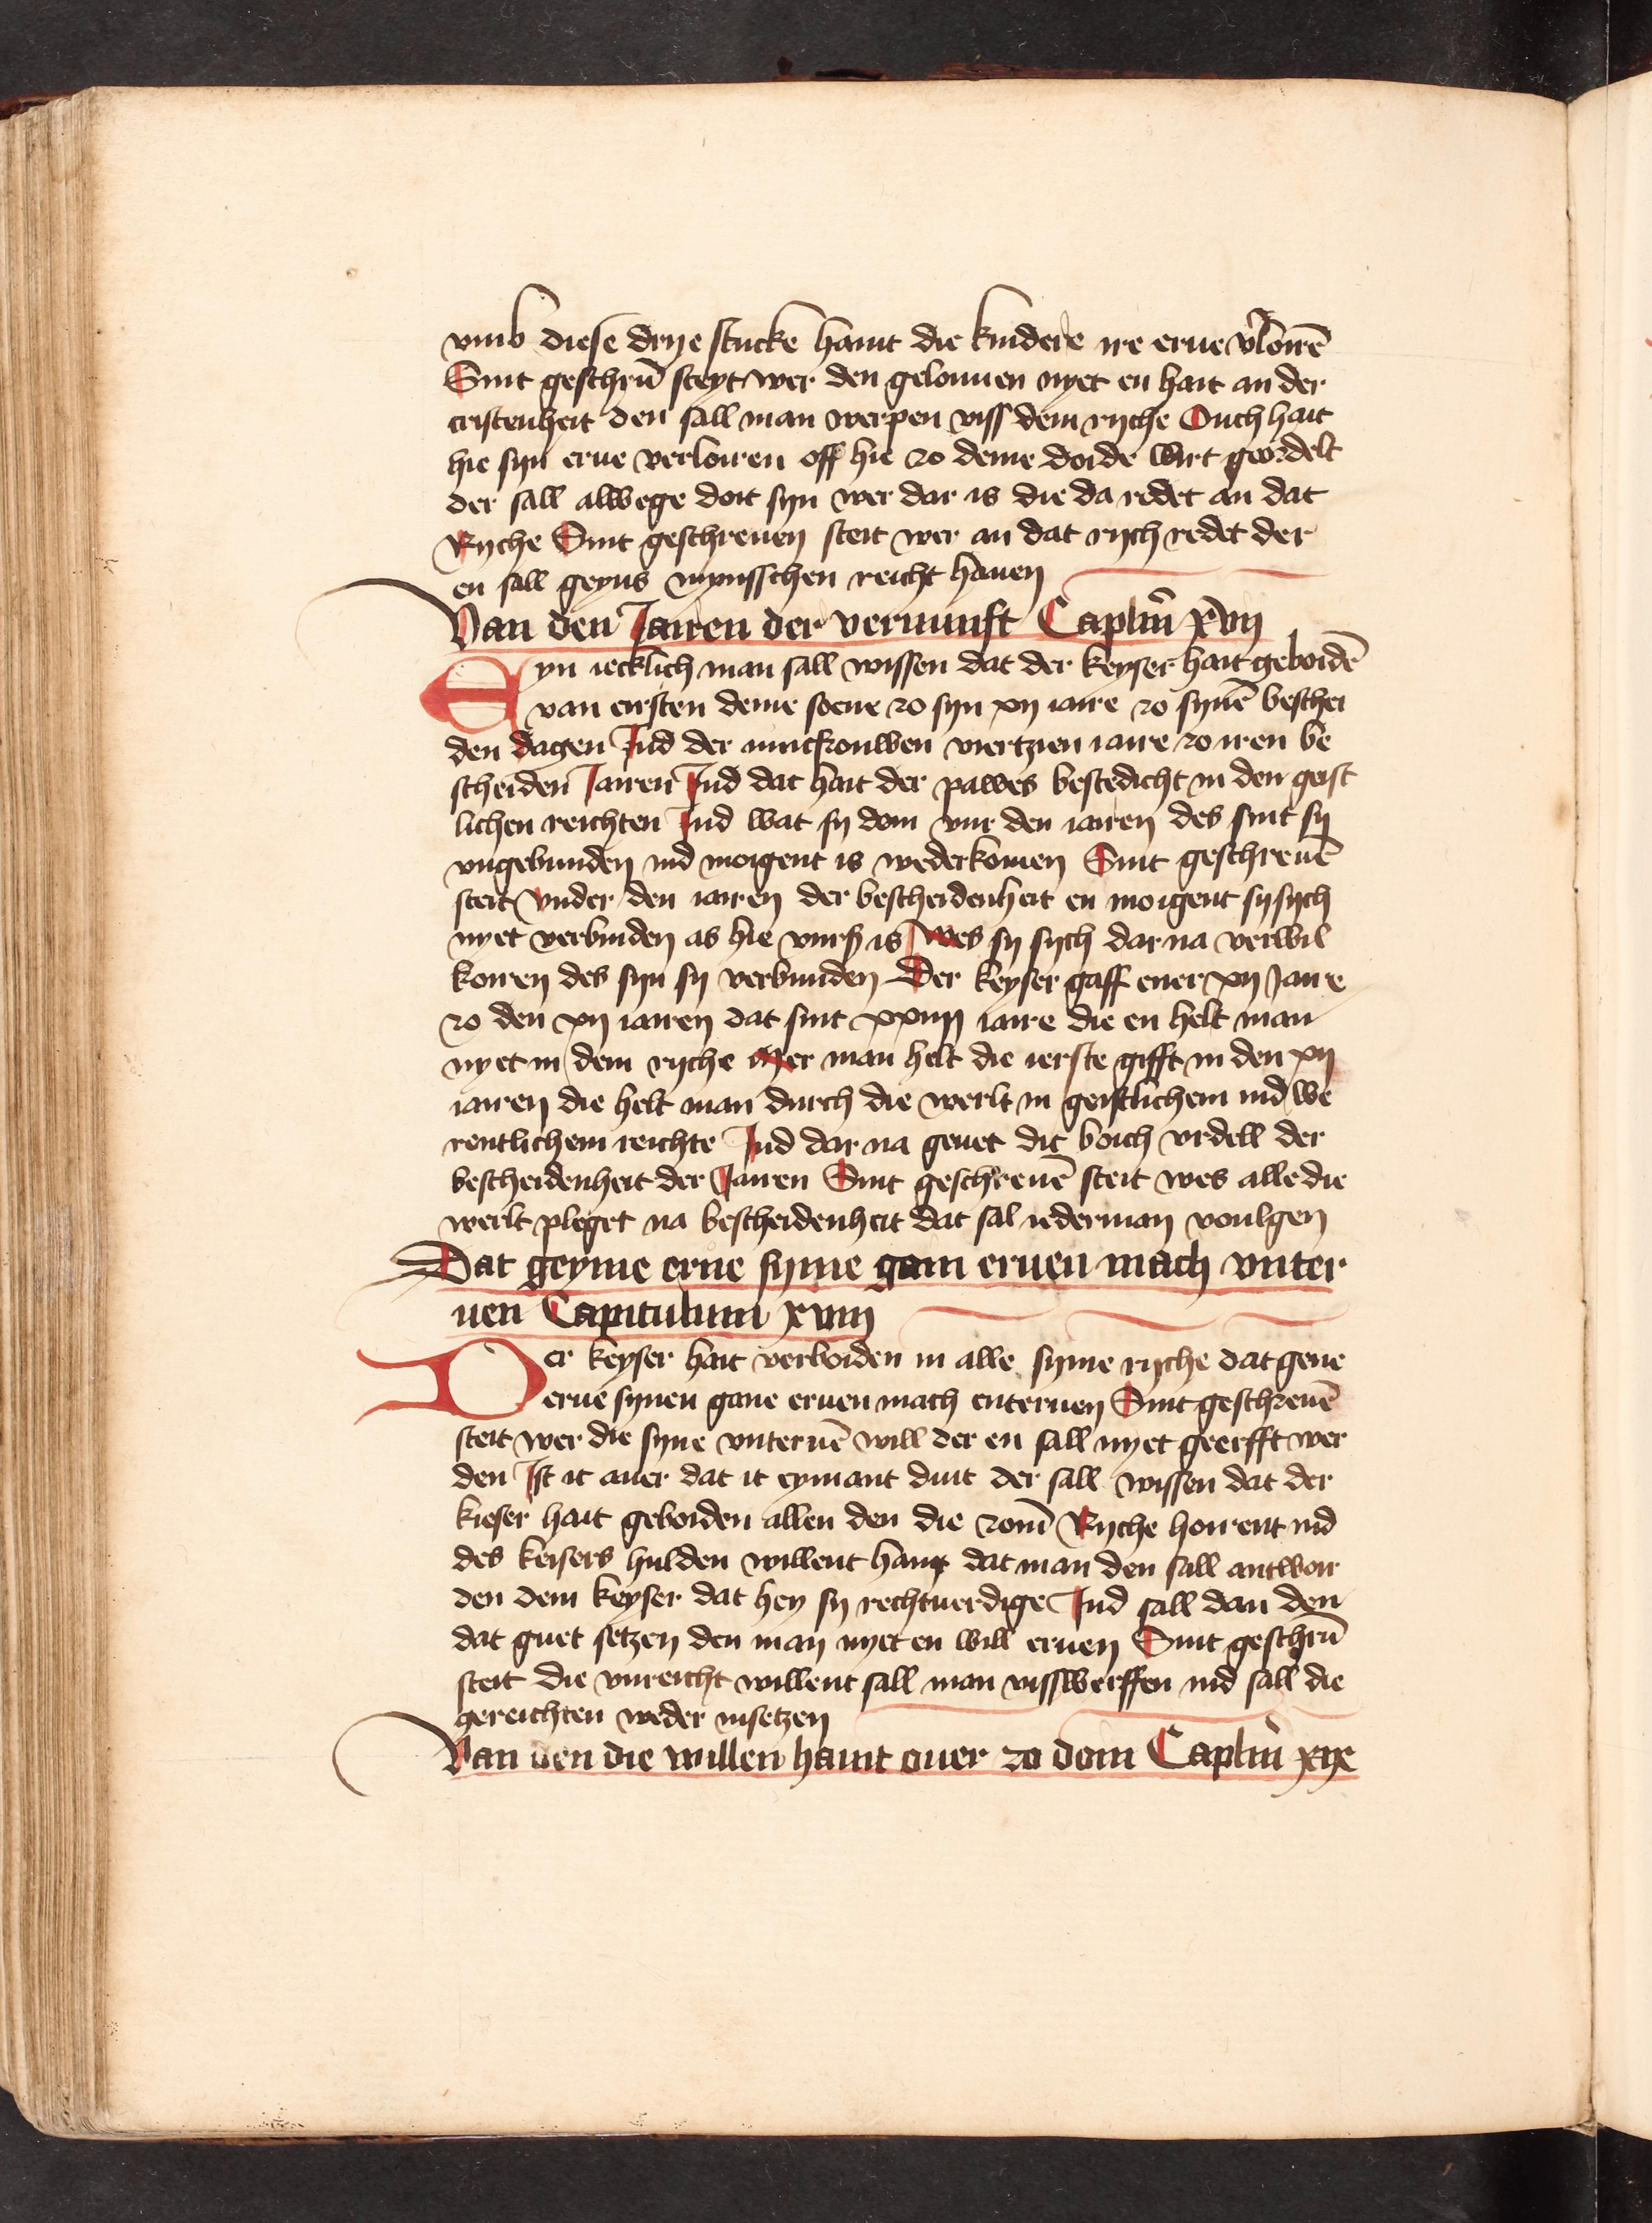 vmb diese drye stucke haint die kindere ire erue v͛loirē
Sint geschrū steyt wer den gelouuen nyet en hait an der
cristenheit den sall man werpen viss dem ryche Ouch hait
hie syn erue verloiren off hie zo deme doide wirt geordelt
der sall alwege doit syn wer dar is die da redet an dat
Ryche Sint geschreuen steit wer an dat rych redet der
en sall geyns mynsschen reicht hauen
Van den Jairen der vernunft Caplm̄ xvij
Eyn iecklich man sall wissen dat der keyser hait geboidē
van eirsten deme soene zo syn xij iaire zo synē beschei
den dagen Ind der iunckfrouwen viertzien iaire zo iren be
scheiden Jairen Ind dat hait der pawes bestedicht in den geist
lichen reichten Ind wat sy doin vur den iairen des sint sy
vngebunden ind moigent is wederkomen Sint geschreuē
steit vnder den iairen der bescheidenheit en moigent sy sych
nyet verbinden as hie vurß is wes sy sych dar na verwil
koiren des syn sy verbunden Der keyser gaff euer xij Jaire
zo den xij iairen dat sint xxiiij iaire die en helt man
nyet in dem ryche mer man helt die ierste gifft in den xij
iairen die helt man durch die werlt in geistlichem ind we
rentlichem reichte Ind dar na geuet dit boich vrdell der
bescheidenheit der Jairen Sint geschreuē steit wes alle die
werlt pleget na bescheidenheit dat sal iederman voulgen
Dat geyne erue syme gain eruen mach vnter
uen Capitulum xviij
Der keyser hait verboiden in alle syme ryche dat gene
erue synen gane eruen mach enteruen Sint geschreuē
steit wer die syne vnteruē will der en sall nyet geerfft wer
den Ist it auer dat it eymant duit der sall wissen dat der
kieser hait geboiden allen den die zom̄ Ryche hoirent ind
des keisers hulden willent hain dat man den sall antwor
den dem keyser dat hey sy rechtuerdige Ind sall dan den
dat guet setzen den man nyet en will eruen Sint geschrū
steit die vnreicht willent sall man visswerffen ind sall die
gereichten weder insetzen
Van den die willen haint ouer zo doin Caplm̄ xix